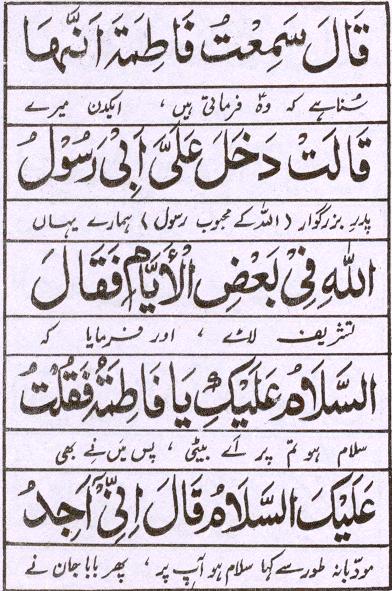 قَالَ سَمِعْتُ فَاطِمَةَ اَنَّهَا
سُنا ہے کہ وہؑ فرماتی ہیں ، ایکدن میرے
قَالَتْ دَخَلَ عَلَیَّ اَبِیْ رَسُوْلُ
پدرِ بزرگوار (اللہ کے محبوب رسول) ہمارے یہاں
اللّٰهِ فِیْ بَعْضِ الْاَیَّامِ فَقَالَ
تشریف لائے ، اور فرمایا کہ
السَّلَامُ عَلَیْکِ یَا فَاطِمَۃُ فَقُلْتُ
سلام ہو تم پر اَے بیٹی ، پس میں نے بھی
عَلَیْکَ السَّلَامُ قَالَ اِنِّیْ اَجِدُ
مودّبانہ طور سے کہا سلام ہو آپ پر ، پھر بابا جان نے